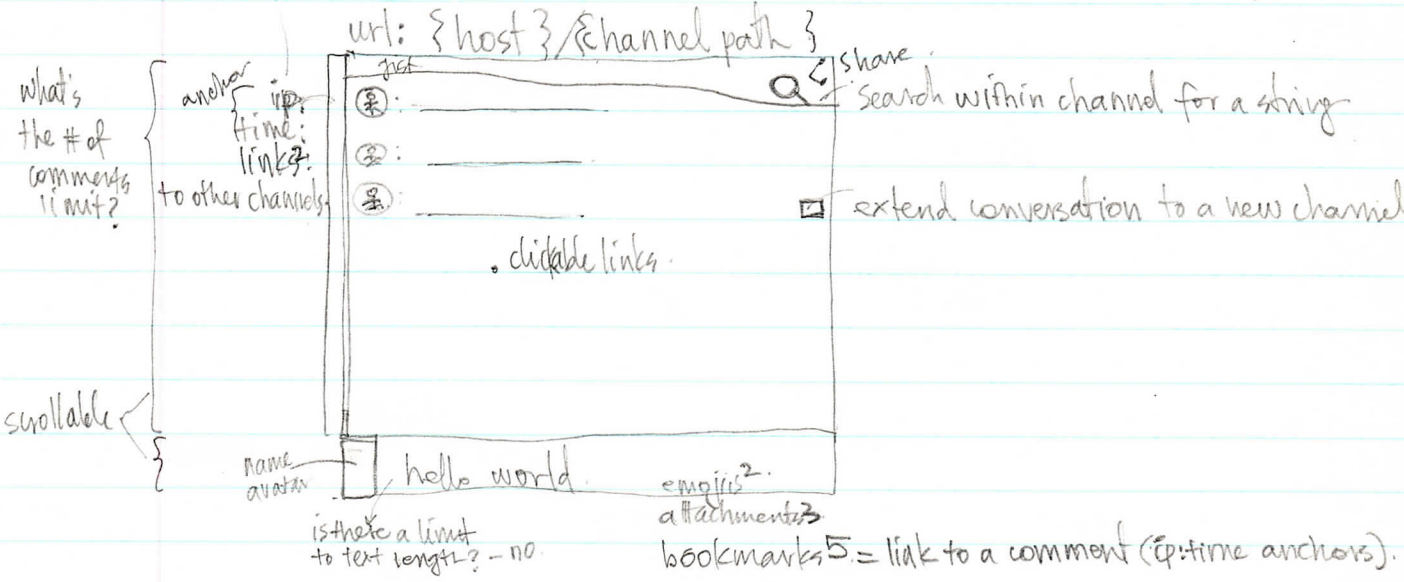 url: {host}/{channel path}
share
search within channel for a string
what's
the # of
comments
limit?
anchor
ip:
time:
links2:
to other channels
extend conversation to a new channel
clickable links
scrollable
name
avatar
hello world
emojis2
attachments3
is there a limit
to text length? - no
bookmarks5 = link to a comment (ip:time anchors).